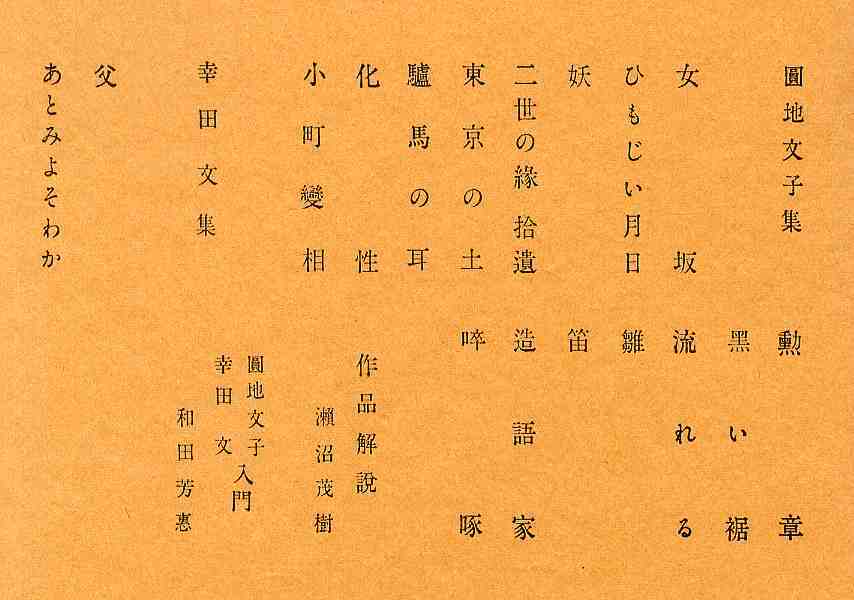 圓地文子集
女坂
ひもじい月日
妖
二世の緣 拾遺
東京の土
驢馬の耳
化性
小町變相
幸田文集
父
あとみよそわか
勳章
黑い裾
流れる
雛
笛
造語家
啐啄
作品解說
瀨沼茂樹
圓地文子
幸田文
入門
和田芳惠